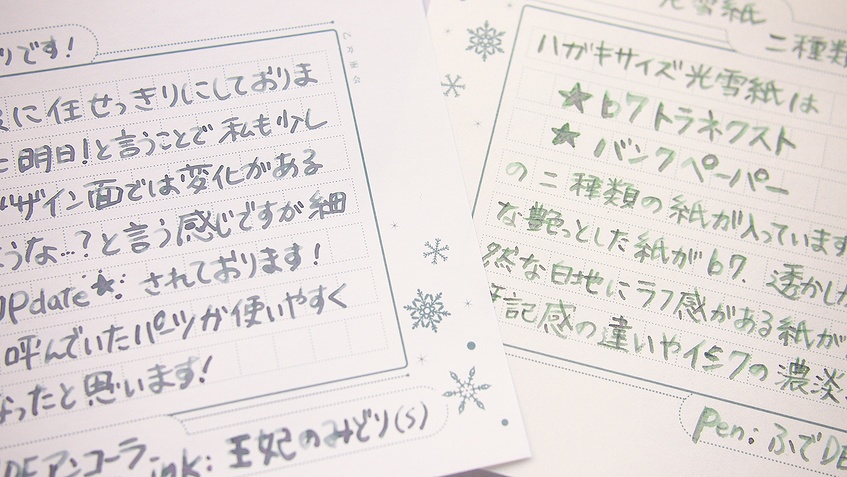 りです!
に任せっきりにしておりま
明日!と言うことで私も少し
ザイン面では変化がある
うな…?と言う感じですが細
UPdate★:されております!
呼んでいたパーツが使いやすく
なったと思います!
DEアンコーラ
ink:王妃のみどり(S)
光雪紙
二種類
ハガキサイズ光雪紙は
★b7トラネクスト
★バンクペーパー
の二種類の紙が入っています
な艶っとした紙がb7.透かした
然な白地にラフ感がある紙が
筆記感の違いやインクの濃淡
Pen:ふでDE